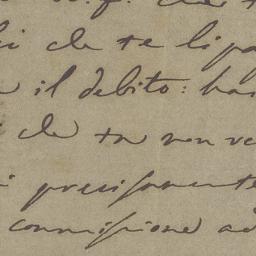 ci che te li pa
il debito: ha
che tu non ve
i precisamente
commissione ad